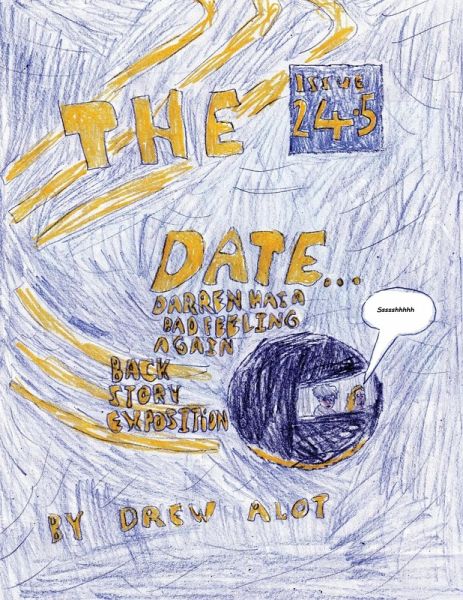 THE
ISSUE
24.5
DATE...
DARREN HAS A
BAD FEELING
AGAIN
BACK
STORY
EXPOSITION
Ssssshhhhh
BY DREW ALOT